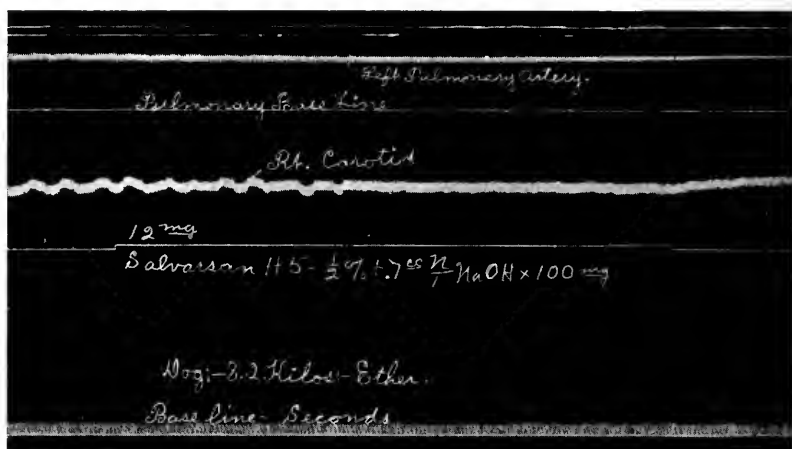 Left Pulmonary Artery.
Pulmonary Base Line
Rt. Carotid
12 mg
Salvarsan H 5 - 1/2 % + .7 cc n/1 NaOH × 100 mg
Dog:- 8.2 Kilos - Ether.
Base line - Seconds